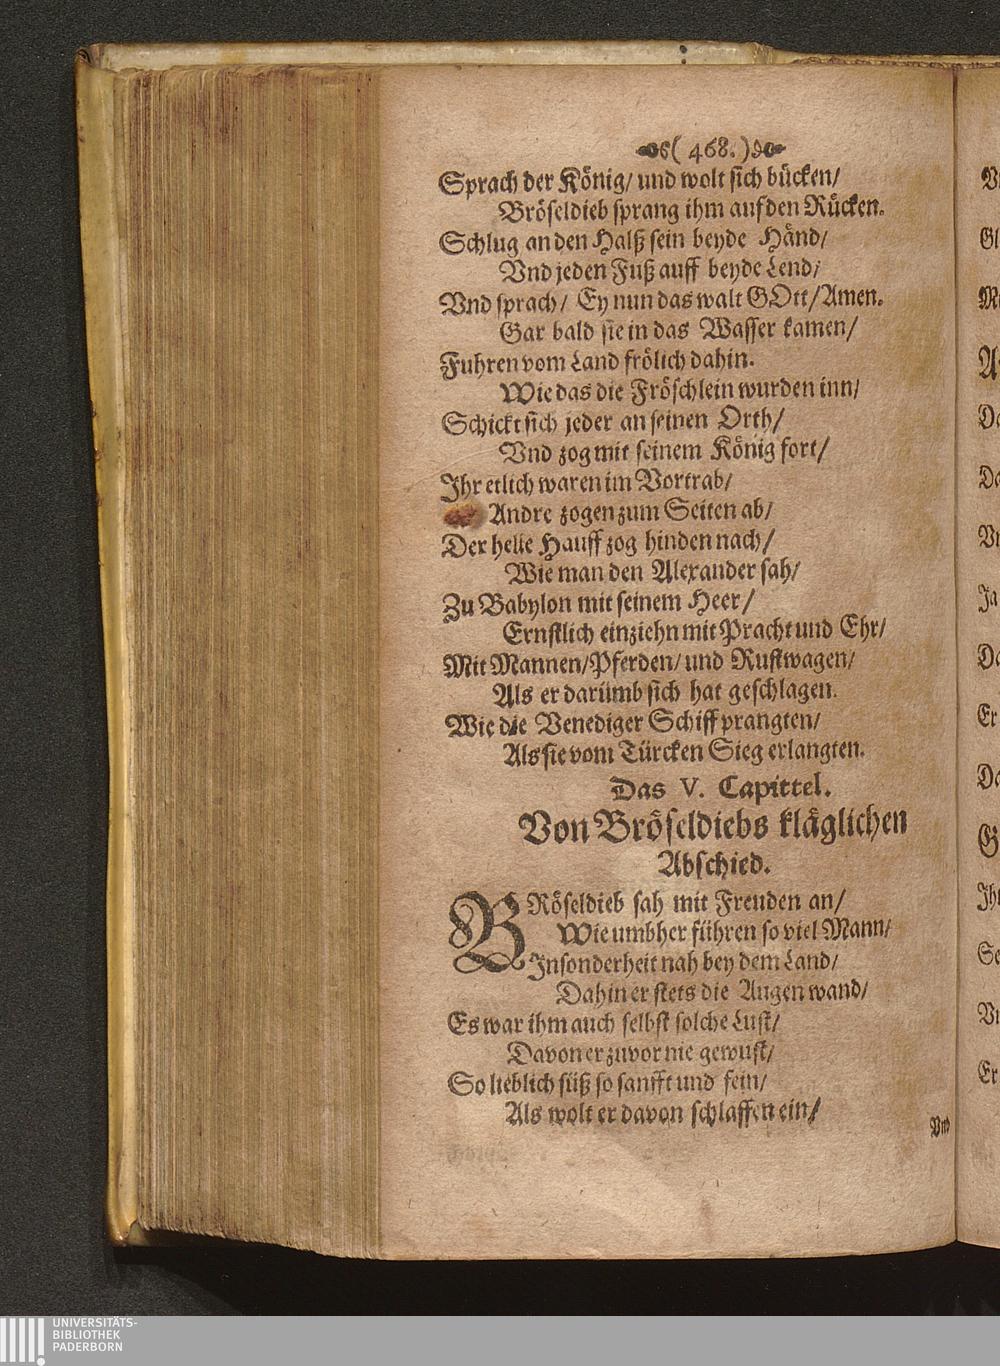 ( 468. )
Sprach der König/ und wolt sich bücken/
Bröseldieb sprang ihm auf den Rücken.
Schlug an den Halß sein beyde Händ/
Vnd jeden Fuß auff beyde Lend/
Vnd sprach/ Ey nun das walt GOtt/Amen.
Gar bald sie in das Wasser kamen/
Fuhren vom Land frölich dahin.
Wie das die Fröschlein wurden inn/
Schickt sich jeder an seinen Orth/
Vnd zog mit seinem König fort/
Ihr etlich waren im Vortrab/
Andre zogen zum Seiten ab/
Der helle Hauff zog hinden nach/
Wie man den Alexander sah/
Zu Babylon mit seinem Heer/
Ernstlich einziehn mit Pracht und Ehr/
Mit Mannen/Pferden/ und Rustwagen/
Als er darümb sich hat geschlagen.
Wie die Venediger Schiff prangten/
Als sie vom Türcken Sieg erlangten.
Das V. Capittel.
Von Bröseldiebs kläglichen
Abschied.
BRöseldieb sah mit Freuden an/
Wie umbher führen so viel Mann/
Insonderheit nah bey dem Land/
Dahin er stets die Augen wand/
Es war ihm auch selbst solche Lust/
Davon er zuvor nie gewust/
So lieblich süß so sanfft und fein/
Als wolt er davon schlaffen ein/
Vnd
UNIVERSITÄTS-
BIBLIOTHEK
PADERBORN